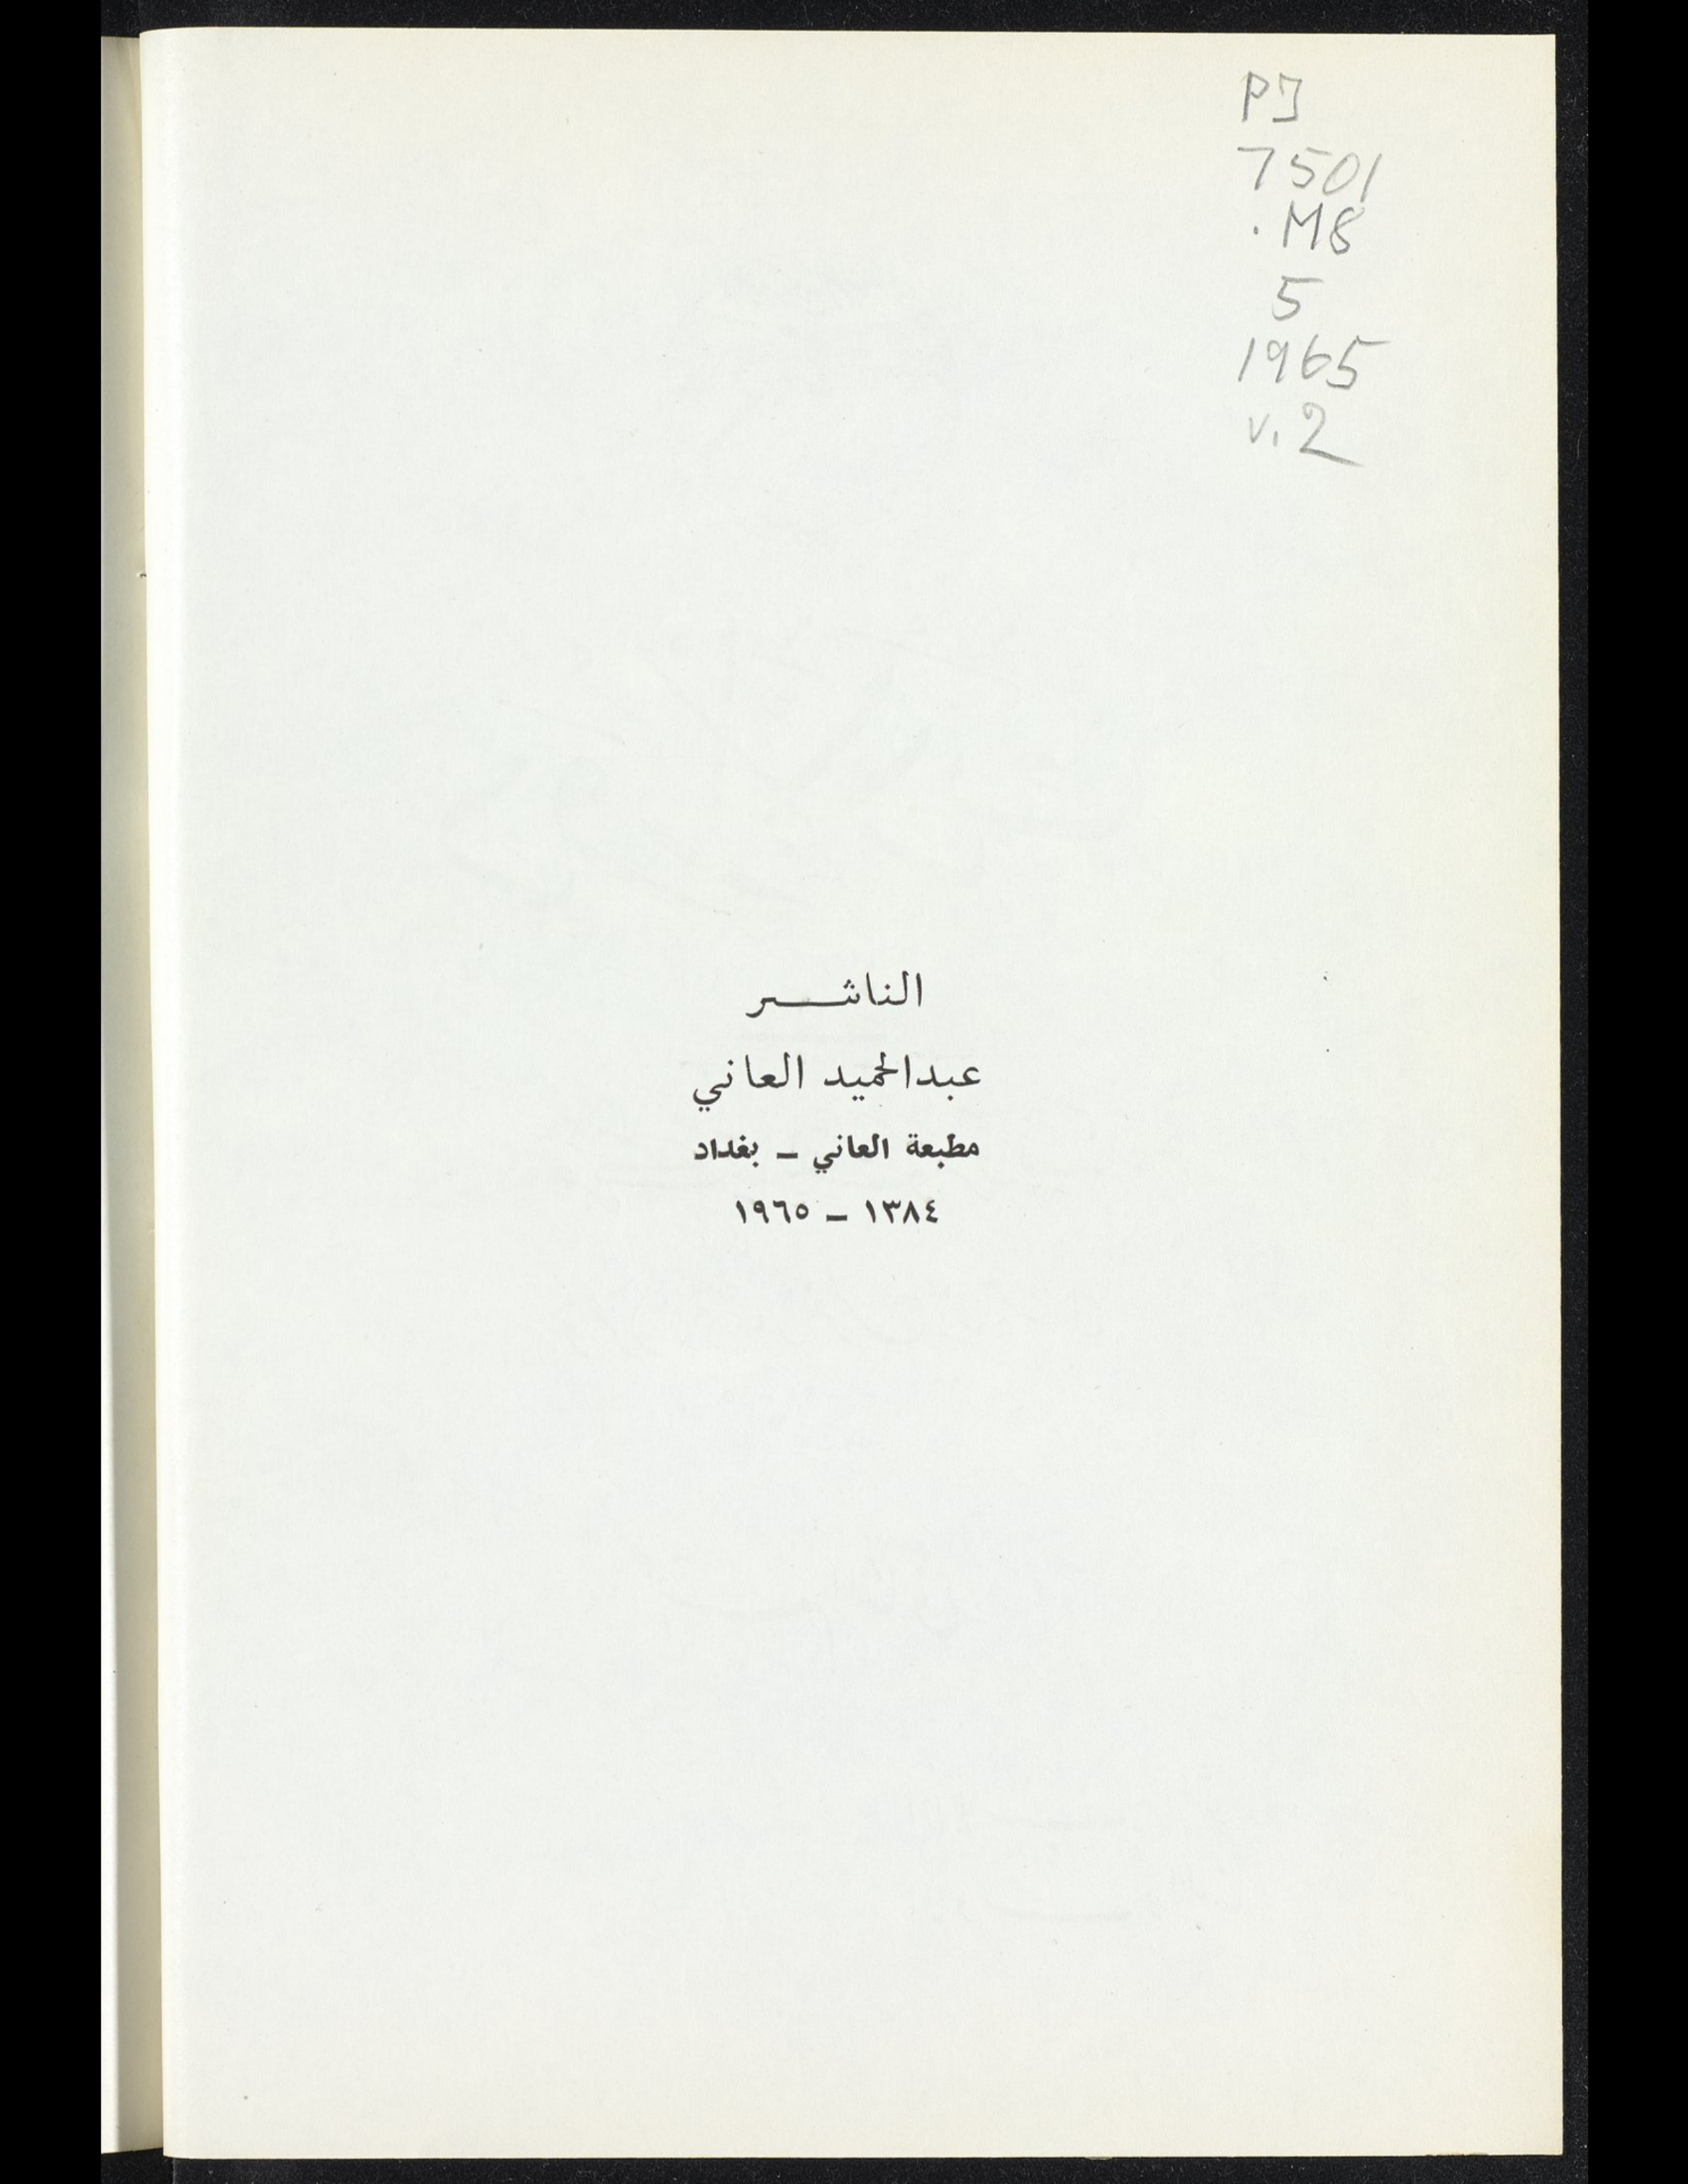 PJ
7501
.M8
5
1965
v.2
الناشر
عبدالحميد العاني
مطبعة العاني – بغداد
١٣٨٤ – ١٩٦٥